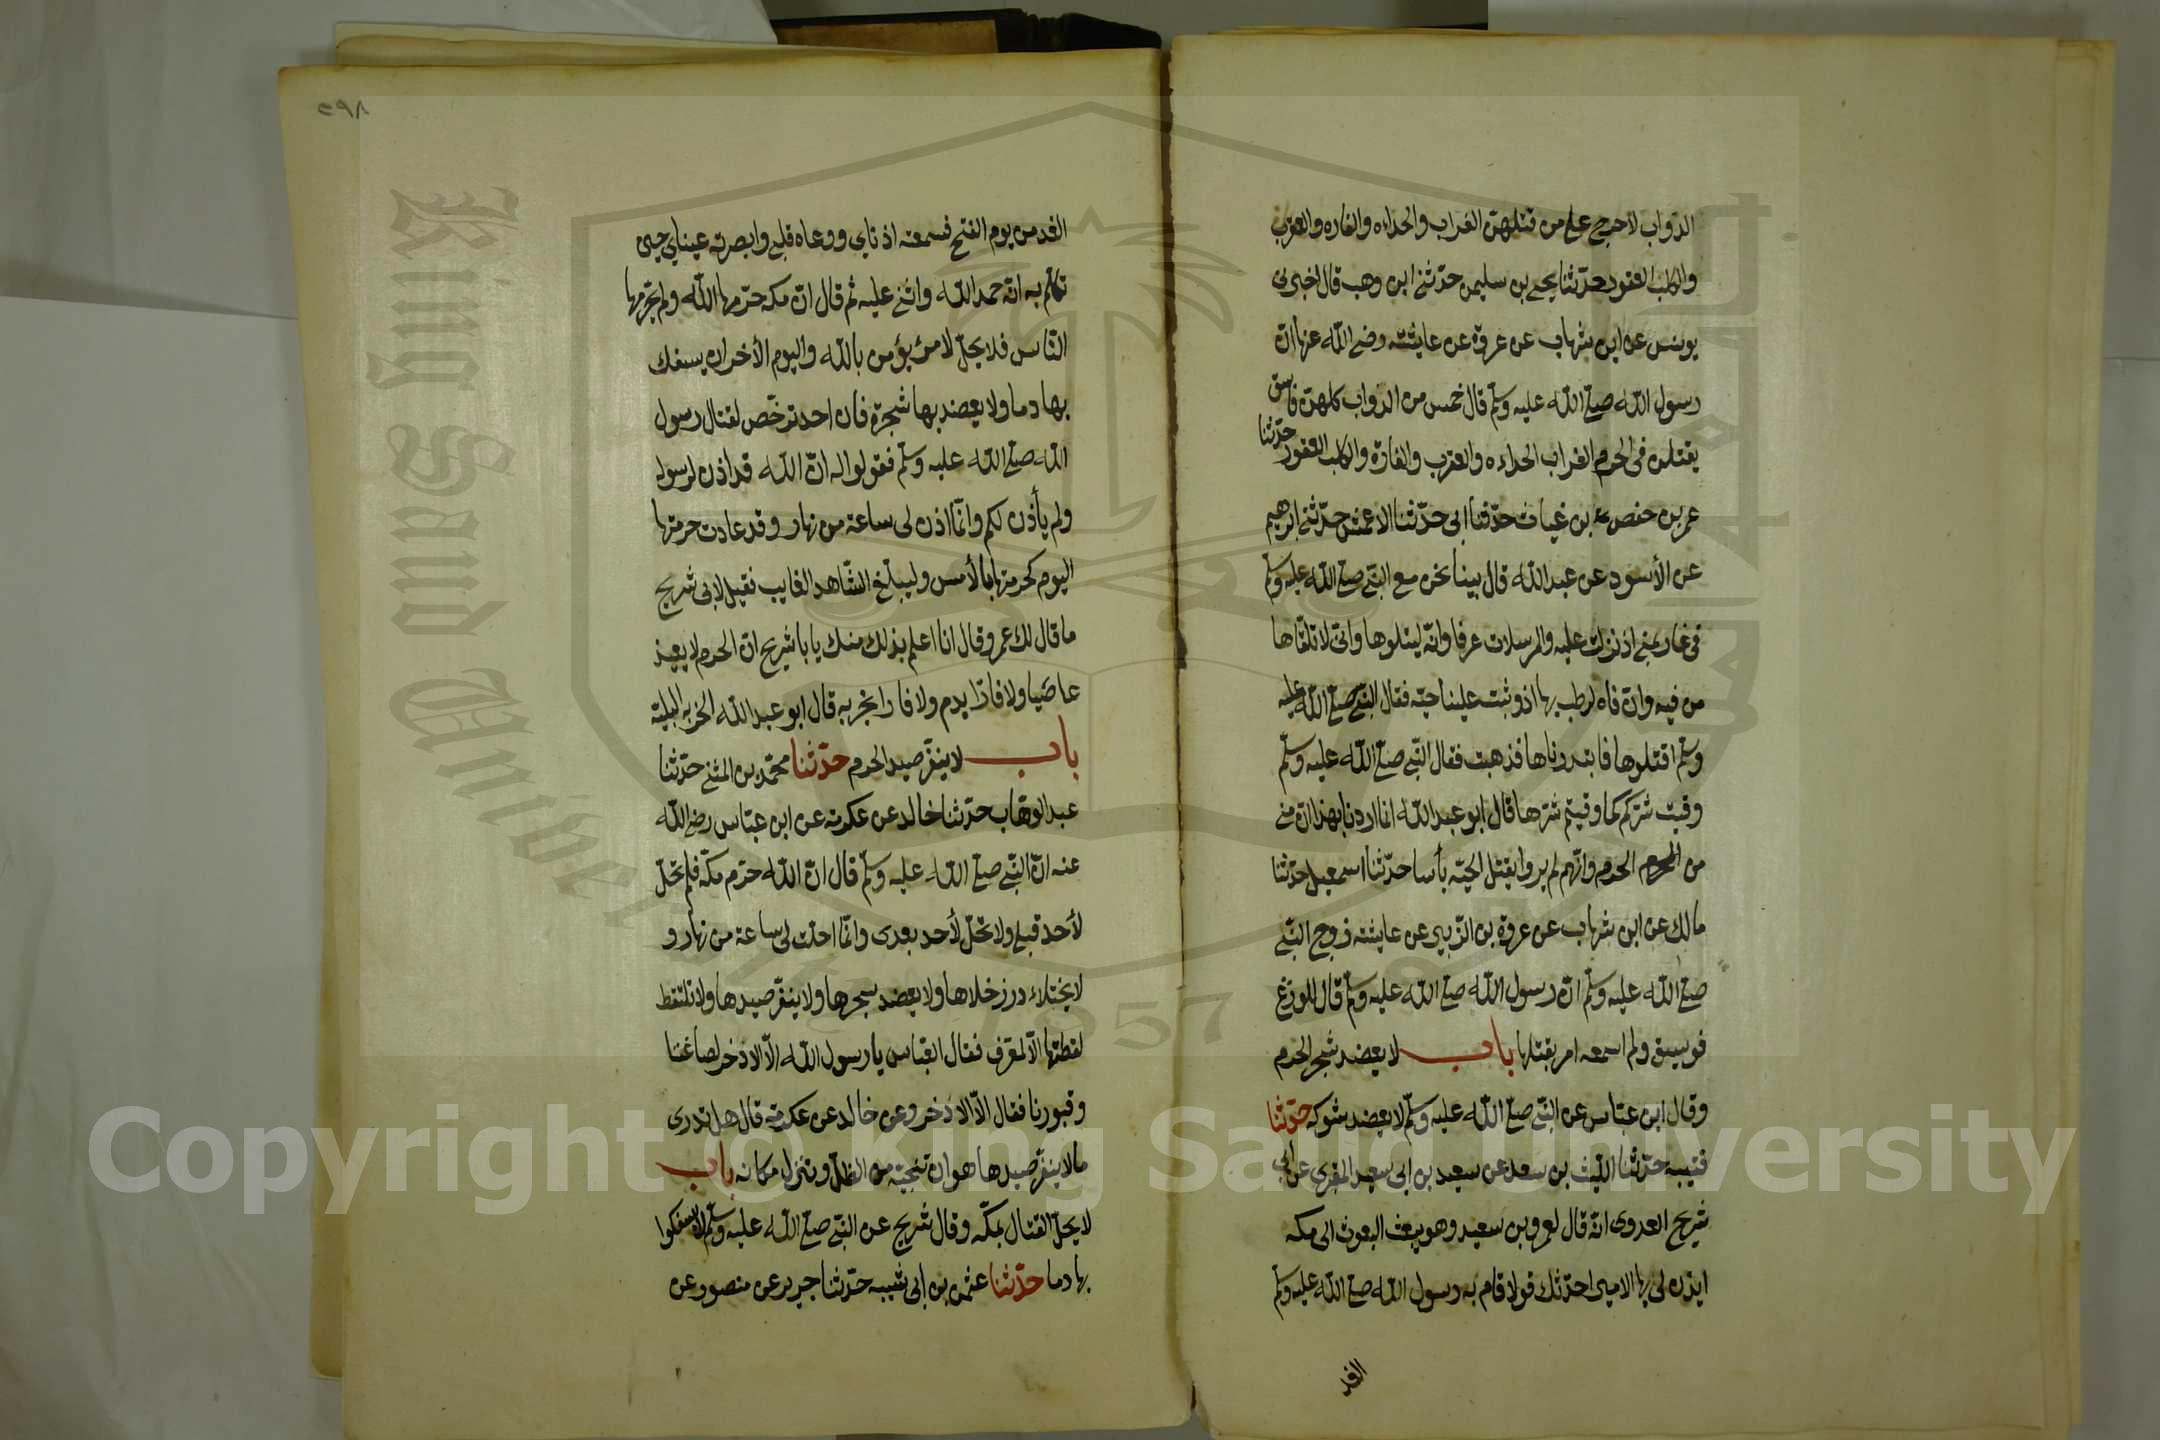 الدواب لا حرج على من قتلهن الغراب والحداءه والفاره والعقرب
والكلب العقور حدثنا يحيى بن سليمن حدثني ابن وهب قال اخبرني
يونس عن ابن شهاب عن عروة عن عايشه رضي الله عنها ان
رسول الله صلى الله عليه وسلم قال خمس من الدواب كلهن فاسق
يقتلن في الحرم الغراب الحداءه والعقرب والفارة والكلب العقور حدثنا
عمر بن حفص بن غياث حدثنا ابى حدثنا الاعمش حدثني ابرهيم
عن الأسود عن عبد الله قال بينا نحن مع النبي صلى الله عليه وسلم
فى غار بمنى اذ نزلت عليه والمرسلات عرفا وانه ليتلوها وانى لا تلقاها
من فيه وان فاه لرطب بها اذ وثبت علينا حيه فقال النبي صلى الله عليه
وسلم اقتلوها فابتدرناها فذهبت فقال النبي صلى الله عليه وسلم
وقيت شركم كما وقيتم شرها قال ابو عبد الله انما اردنا بهذا ان منى
من الحرم وانهم لم يروا بقتل الحيه بأسا حدثنا اسمعيل حدثنا
مالك عن ابن شهاب عن عروة بن الزبير عن عايشه زوج النبي
صلى الله عليه وسلم ان رسول الله صلى الله عليه وسلم قال للوزغ
فويسق ولم اسمعه امر بقتلها باب لا يعضد شجر الحرم
وقال ابن عباس عن النبي صلى الله عليه وسلم لا يعضد شوكه حدثنا
قتيبه حدثنا الليث بن سعد عن سعيد بن ابى سعيد المقبرى عن أبى
شريح العدوى انه قال لعمرو بن سعيد وهو يبعث البعوث الى مكه
ايذن لى ايها الامير احدثك قولا قام به رسول الله صلى الله عليه وسلم
الغد
٢٩٨
الغد من يوم الفتح فسمعته اذناي ووعاه قلبي وابصرته عيناي حين
تكلم به انه حمد الله واثنى عليه ثم قال ان مكه حرمها الله ولم يحرمها
الناس فلا يحل لامرئ يؤمن بالله واليوم الأخر ان يسفك
بها دما ولا يعضد بها شجرة فان احد ترخص لقتال رسول
الله صلى الله عليه وسلم فقولوا له ان الله قد اذن لرسوله
ولم يأذن لكم وانما اذن لى ساعة من نهار وقد عادت حرمتها
اليوم كحرمتها بالأمس وليبلغ الشاهد الغايب فقيل لابى شريح
ما قال لك عمرو قال انا اعلم بذلك منك يا با شريح ان الحرم لا يعيذ
عاصيا ولا فارا بدم ولا فارا بخربه قال ابو عبد الله الخربه البليه
باب لا ينفر صيد الحرم حدثنا محمد بن المثنى حدثنا
عبد الوهاب حدثنا خالد عن عكرمة عن ابن عباس رضي الله
عنه ان النبي صلى الله عليه وسلم قال ان الله حرم مكة فلم تحل
لأحد قبلى ولا تحل لأحد بعدى وانما احلت لى ساعة من نهار و
لا يختلاء خلاها ولا يعضد شجرها ولا ينفر صيدها ولا تلتقط
لقطتها الا لمعرف فقال العباس يا رسول الله الا الاذخر لصاغتنا
وقبورنا فقال الا الاذخر وعن خالد عن عكرمة قال هل تدرى
ما لا ينفر صيدها هو ان تنحيه من الظل وتنزل مكانه باب
لا يحل القتال بمكة وقال شريح عن النبي صلى الله عليه وسلم لا يسفكوا
بها دما حدثنا عثمن بن ابى شيبه حدثنا جرير عن منصور عن
King Saud University
1957
Copyright © King Saud University